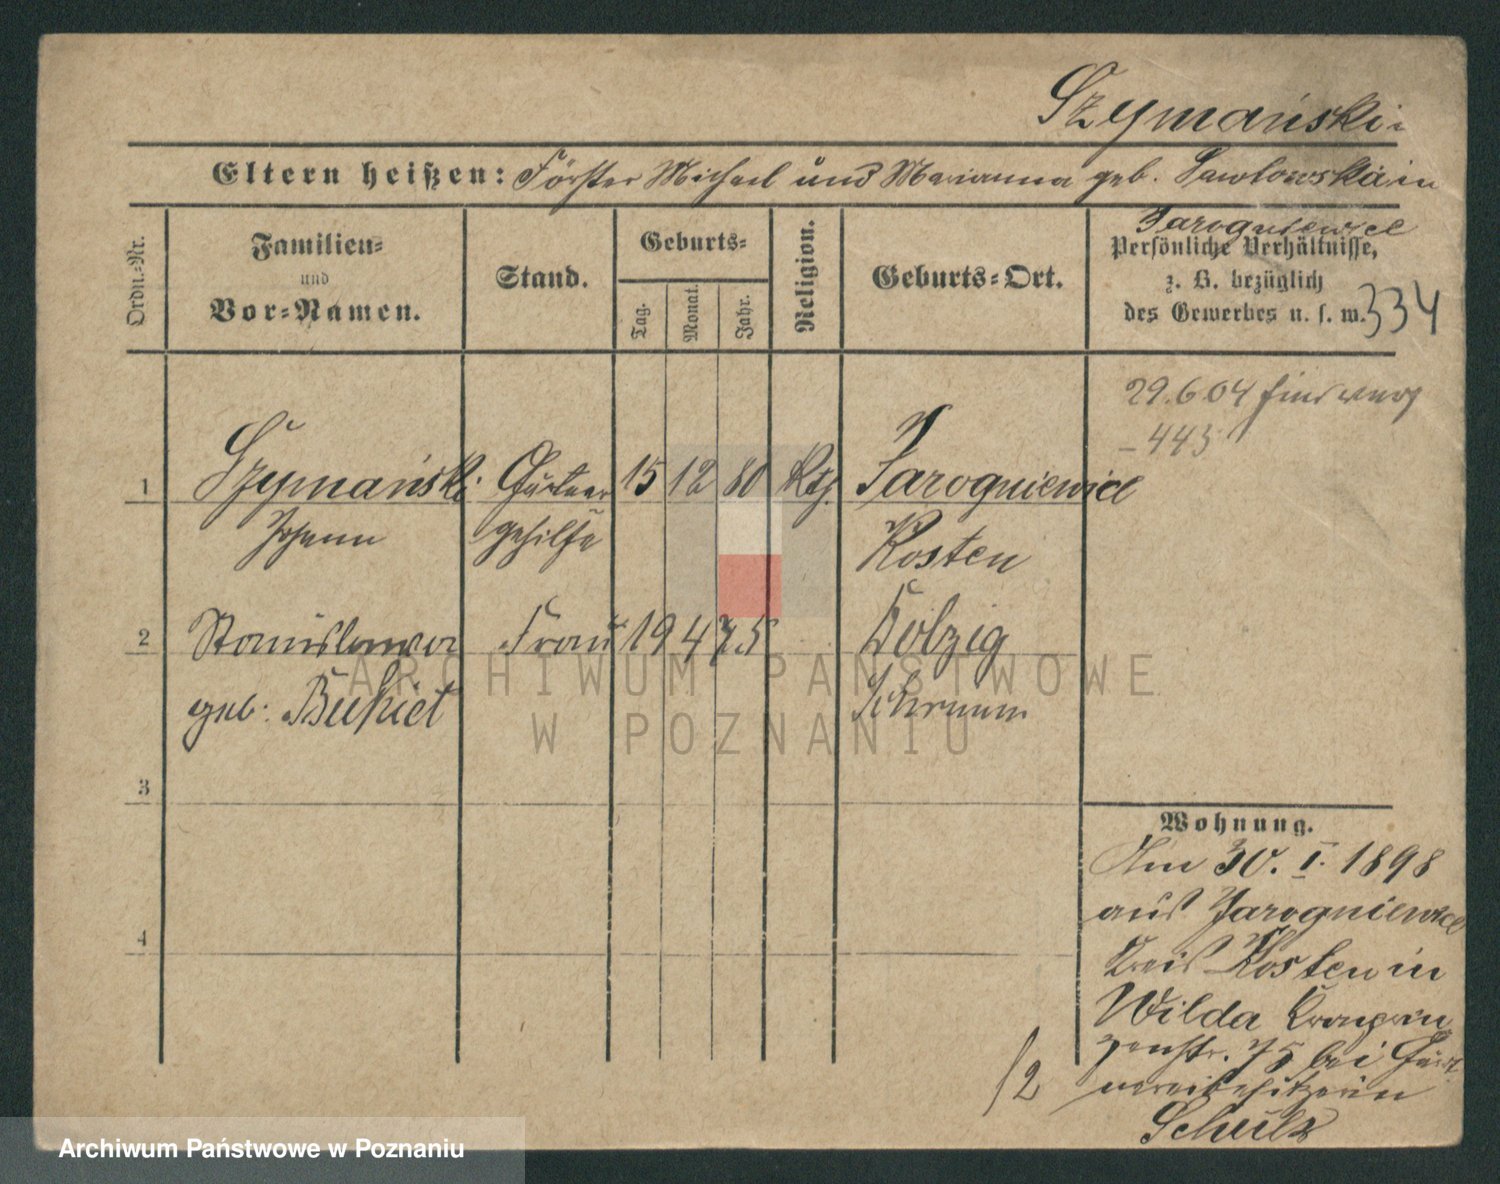 Szymański
Eltern heißen: Förster Michael und Marianna geb. Pawlowska in
Jarogniewice
Ordn.-Nr.
Familien-
und
Vor-Namen.
Stand.
Geburts-
Tag.
Monat.
Jahr.
Religion.
Geburts-Ort.
Persönliche Verhältnisse,
z. B. bezüglich
des Gewerbes u. s. w. 334
29.6.04
- 443
1 Szymański Gärtner 15 12 80 Kth. Jarogniewice
Johann gehilfe Kosten
2 Stanislawa Frau 19 4 75 Dolzig
geb. Bukiet Schrimm
3
4
Wohnung.
Am 30. I. 1898
aus Jarogniewice
Kreis Kosten in
Wilda Kronprin
zenstr. 75 bei Gärt
nereibesitzerin
Schulz
/2
ARCHIWUM PAŃSTWOWE
W POZNANIU
Archiwum Państwowe w Poznaniu